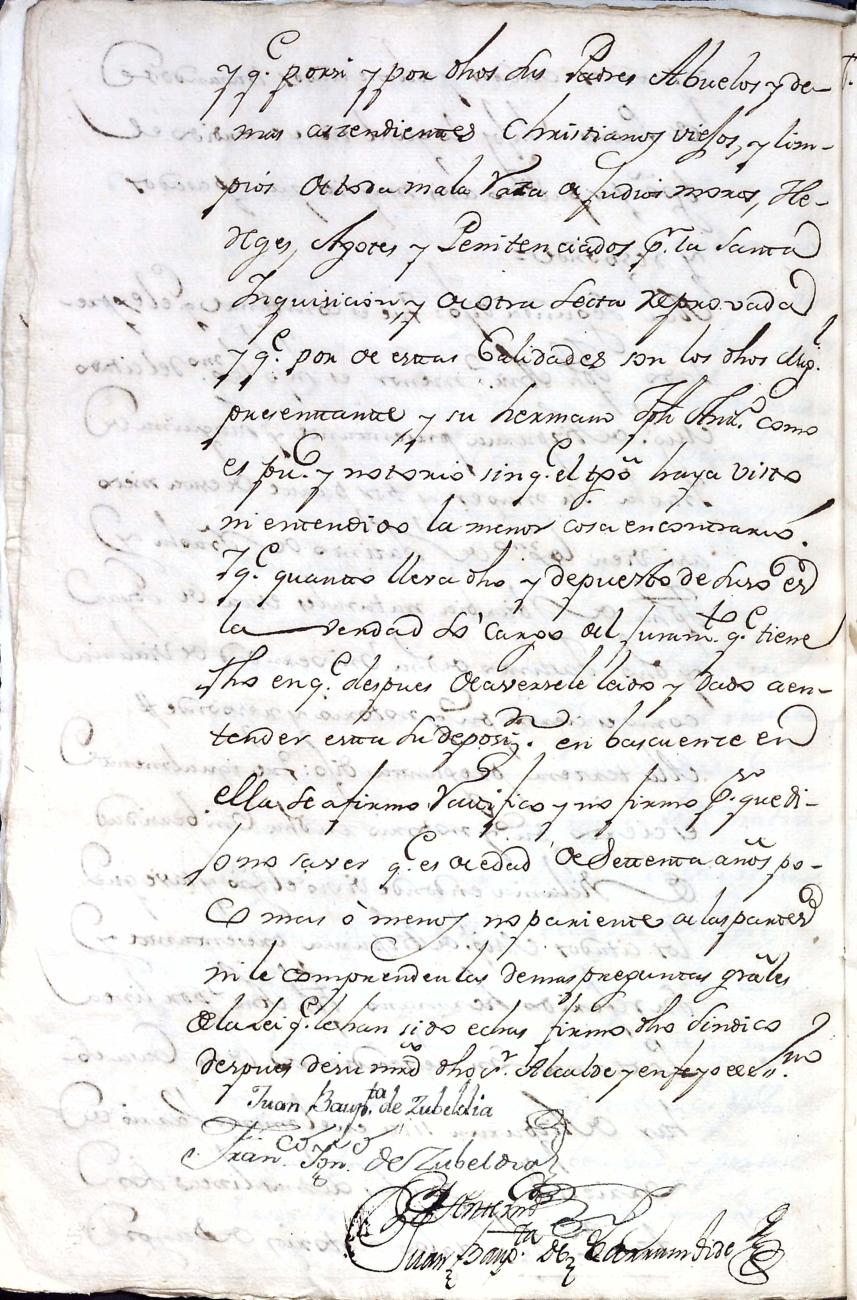 y q.e por si y por dhos sus Padres Abuelos y de-
mas aszendientes Christianos viejos, y lim-
pios de toda mala Raza de Judios moros, He-
reges, Agotes y Penitenciados p.r la Santa
Inquisicion y de otra secta reprovada
y q.e por de esttas Calidades son los dhos Mig.l
presenttante y su hermano Jph Ant.o como
es pu.co y notorio sin q.e el tgo haya visto
ni entendido la menor cosa encontrario.
Y q.e quantto lleva dho y depuesto de suso es
la verdad so cargo del juram.to q.e tiene
fho en q.e despues de averse le leido y dado a en-
tender estta su deposi.on en bascuence en
ella se afirmo Ratifico y no firmo p.r que di-
jo no saver q.e es de edad de Settenta años po-
co mas ò menos no pariente de las partes
ni le comprenden las demas preguntas grâles
de la lei q.e le han sido echas firmo dho Sindico
despues de su mrd dho s.r Alcalde y en fe yo el ss.no
Juan Baup.ta de Zubeldia
Fran.co Ign.o de Zubeldia
Ante mi
Juan Baup.ta de Larrumbide